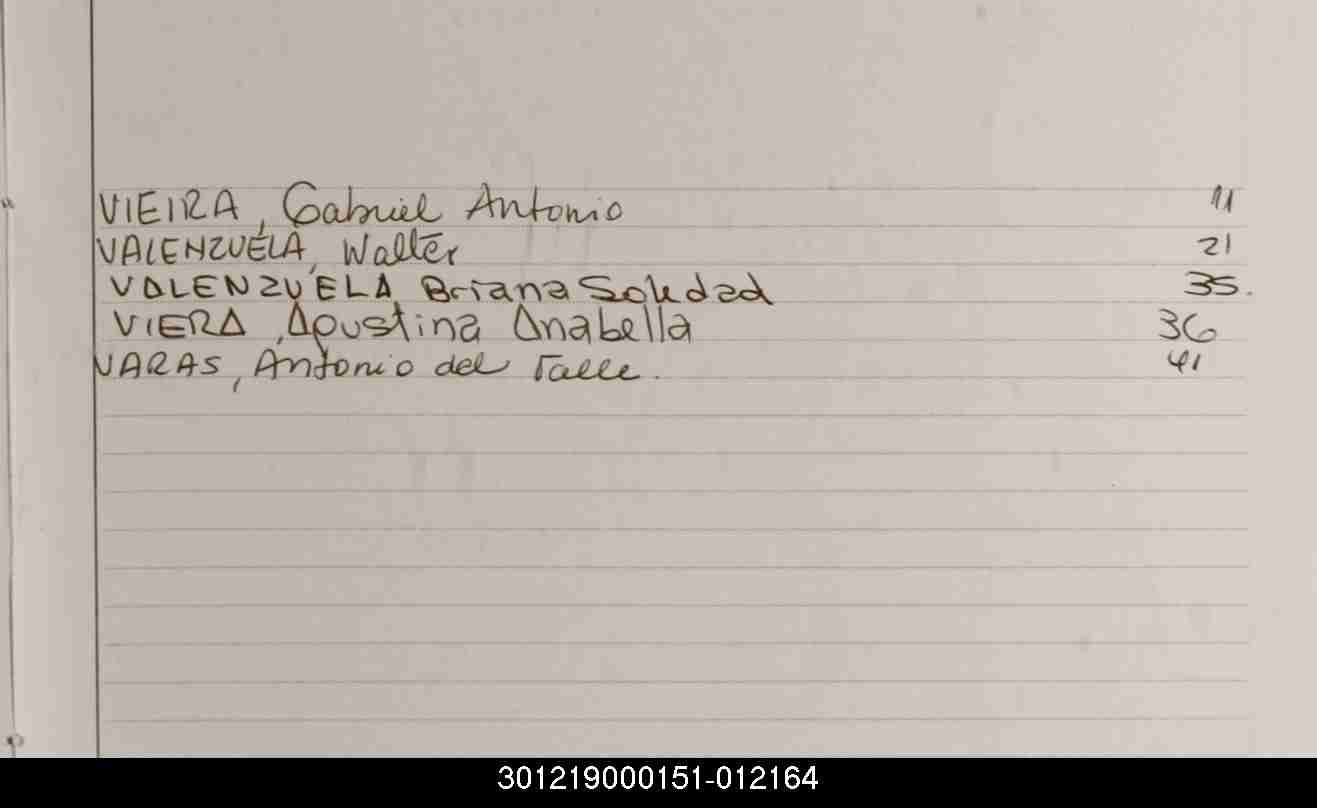 VIEIRA, Gabriel Antonio 11
VALENZUELA, Walter 21
VALENZUELA, Briana Soledad 35.
VIERA, Agustina Anabella 36
VARAS, Antonio del Valle. 41
301219000151-012164